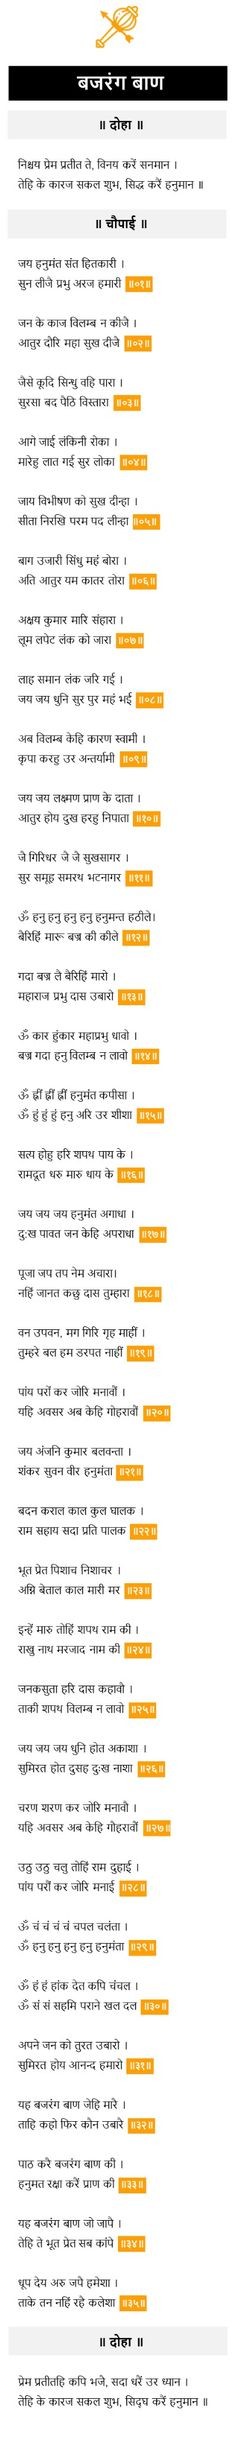 बजरंग बाण
॥ दोहा ॥
निश्चय प्रेम प्रतीत ते, विनय करें सनमान ।
तेहि के कारज सकल शुभ, सिद्ध करैं हनुमान ॥
॥ चौपाई ॥
जय हनुमंत संत हितकारी ।
सुन लीजै प्रभु अरज हमारी ॥०१॥
जन के काज विलम्ब न कीजै ।
आतुर दौरि महा सुख दीजै ॥०२॥
जैसे कूदि सिन्धु वहि पारा ।
सुरसा बद पैठि विस्तारा ॥०३॥
आगे जाई लंकिनी रोका ।
मारेहु लात गई सुर लोका ॥०४॥
जाय विभीषण को सुख दीन्हा ।
सीता निरखि परम पद लीन्हा ॥०५॥
बाग उजारी सिंधु महं बोरा ।
अति आतुर यम कातर तोरा ॥०६॥
अक्षय कुमार मारि संहारा ।
लूम लपेट लंक को जारा ॥०७॥
लाह समान लंक जरि गई ।
जय जय धुनि सुर पुर महं भई ॥०८॥
अब विलम्ब केहि कारण स्वामी ।
कृपा करहु उर अन्तर्यामी ॥०९॥
जय जय लक्ष्मण प्राण के दाता ।
आतुर होय दुख हरहु निपाता ॥१०॥
जै गिरिधर जै जै सुखसागर ।
सुर समूह समरथ भटनागर ॥११॥
ॐ हनु हनु हनु हनु हनुमन्त हठीले।
बैरिहिं मारू बज्र की कीले ॥१२॥
गदा बज्र लै बैरिहिं मारो ।
महाराज प्रभु दास उबारो ॥१३॥
ॐ कार हुंकार महाप्रभु धावो ।
बज्र गदा हनु विलम्ब न लावो ॥१४॥
ॐ ह्रीं ह्रीं ह्रीं हनुमंत कपीसा ।
ॐ हुं हुं हुं हनु अरि उर शीशा ॥१५॥
सत्य होहु हरि शपथ पाय के ।
रामदूत धरु मारु धाय के ॥१६॥
जय जय जय हनुमंत अगाधा ।
दु:ख पावत जन केहि अपराधा ॥१७॥
पूजा जप तप नेम अचारा।
नहिं जानत कछु दास तुम्हारा ॥१८॥
वन उपवन, मग गिरि गृह माहीं ।
तुम्हरे बल हम डरपत नाहीं ॥१९॥
पांय परों कर जोरि मनावौं ।
यहि अवसर अब केहि गोहरावौं ॥२०॥
जय अंजनि कुमार बलवन्ता ।
शंकर सुवन वीर हनुमंता ॥२१॥
बदन कराल काल कुल घालक ।
राम सहाय सदा प्रति पालक ॥२२॥
भूत प्रेत पिशाच निशाचर ।
अग्नि बेताल काल मारी मर ॥२३॥
इन्हें मारु तोहिं शपथ राम की ।
राखु नाथ मरजाद नाम की ॥२४॥
जनकसुता हरि दास कहावौ ।
ताकी शपथ विलम्ब न लावो ॥२५॥
जय जय जय धुनि होत अकाशा ।
सुमिरत होत दुसह दुःख नाशा ॥२६॥
चरण शरण कर जोरि मनावौ ।
यहि अवसर अब केहि गोहरावौं ॥२७॥
उठु उठु चलु तोहिं राम दुहाई ।
पांय परौं कर जोरि मनाई ॥२८॥
ॐ चं चं चं चं चपल चलंता ।
ॐ हनु हनु हनु हनु हनुमंता ॥२९॥
ॐ हं हं हांक देत कपि चंचल ।
ॐ सं सं सहमि पराने खल दल ॥३०॥
अपने जन को तुरत उबारो ।
सुमिरत होय आनन्द हमारो ॥३१॥
यह बजरंग बाण जेहि मारै ।
ताहि कहो फिर कौन उबारै ॥३२॥
पाठ करै बजरंग बाण की ।
हनुमत रक्षा करैं प्राण की ॥३३॥
यह बजरंग बाण जो जापै ।
तेहि ते भूत प्रेत सब कांपे ॥३४॥
धूप देय अरु जपै हमेशा ।
ताके तन नहिं रहे कलेशा ॥३५॥
॥ दोहा ॥
प्रेम प्रतीतहि कपि भजै, सदा धरैं उर ध्यान ।
तेहि के कारज सकल शुभ, सिद्घ करैं हनुमान ॥